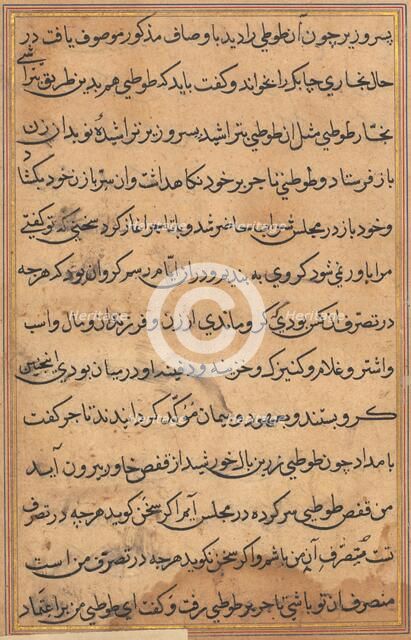 پسر وزیر چون آن طوطی را دید باوصاف مذکور موصوف یافت در
حال نجاری چابک را بخواند و گفت باید که طوطی هم بدین طریق بتراشی
نجار طوطی مثل آن طوطی بتراشید پسر وزیر تراشیدهٔ نو بدان زن
باز فرستاد و طوطی تاجر بر خود نگاه داشت و آن سر باز زن خود بگشاد
و خود باز در مجلس شراب حاضر شد و باتاجر آغاز کرد سخنی که تو گفتی
مرا باور نمی شود گروی به بندیم و در آن ایام رسم گرو آن بود که هر چه
در تصرف آن کس بودی گرو ماندی از زن و فرزندان و مال و اسب
و اشتر و غلام و کنیزک و خزینه و دفینه او در میان بودی اینچنین
گرو بستند و بعهود و پیمان مؤکد گردانیدند تاجر گفت
بامداد چون طوطی زرین بال خورشید از قفص خاور بیرون آید
من قفص طوطی سر کرده در مجلس آرم اگر سخن گوید هر چه در تصرف
تست متصرف آن من باشم و اگر سخن نگوید هر چه در تصرف من است
متصرف آن تو باشی تاجر بر طوطی رفت و گفت ای طوطی من بر اعتماد
Heritage
Heritage
Heritage
Heritage
Heritage
Heritage
Heritage
Heritage
©